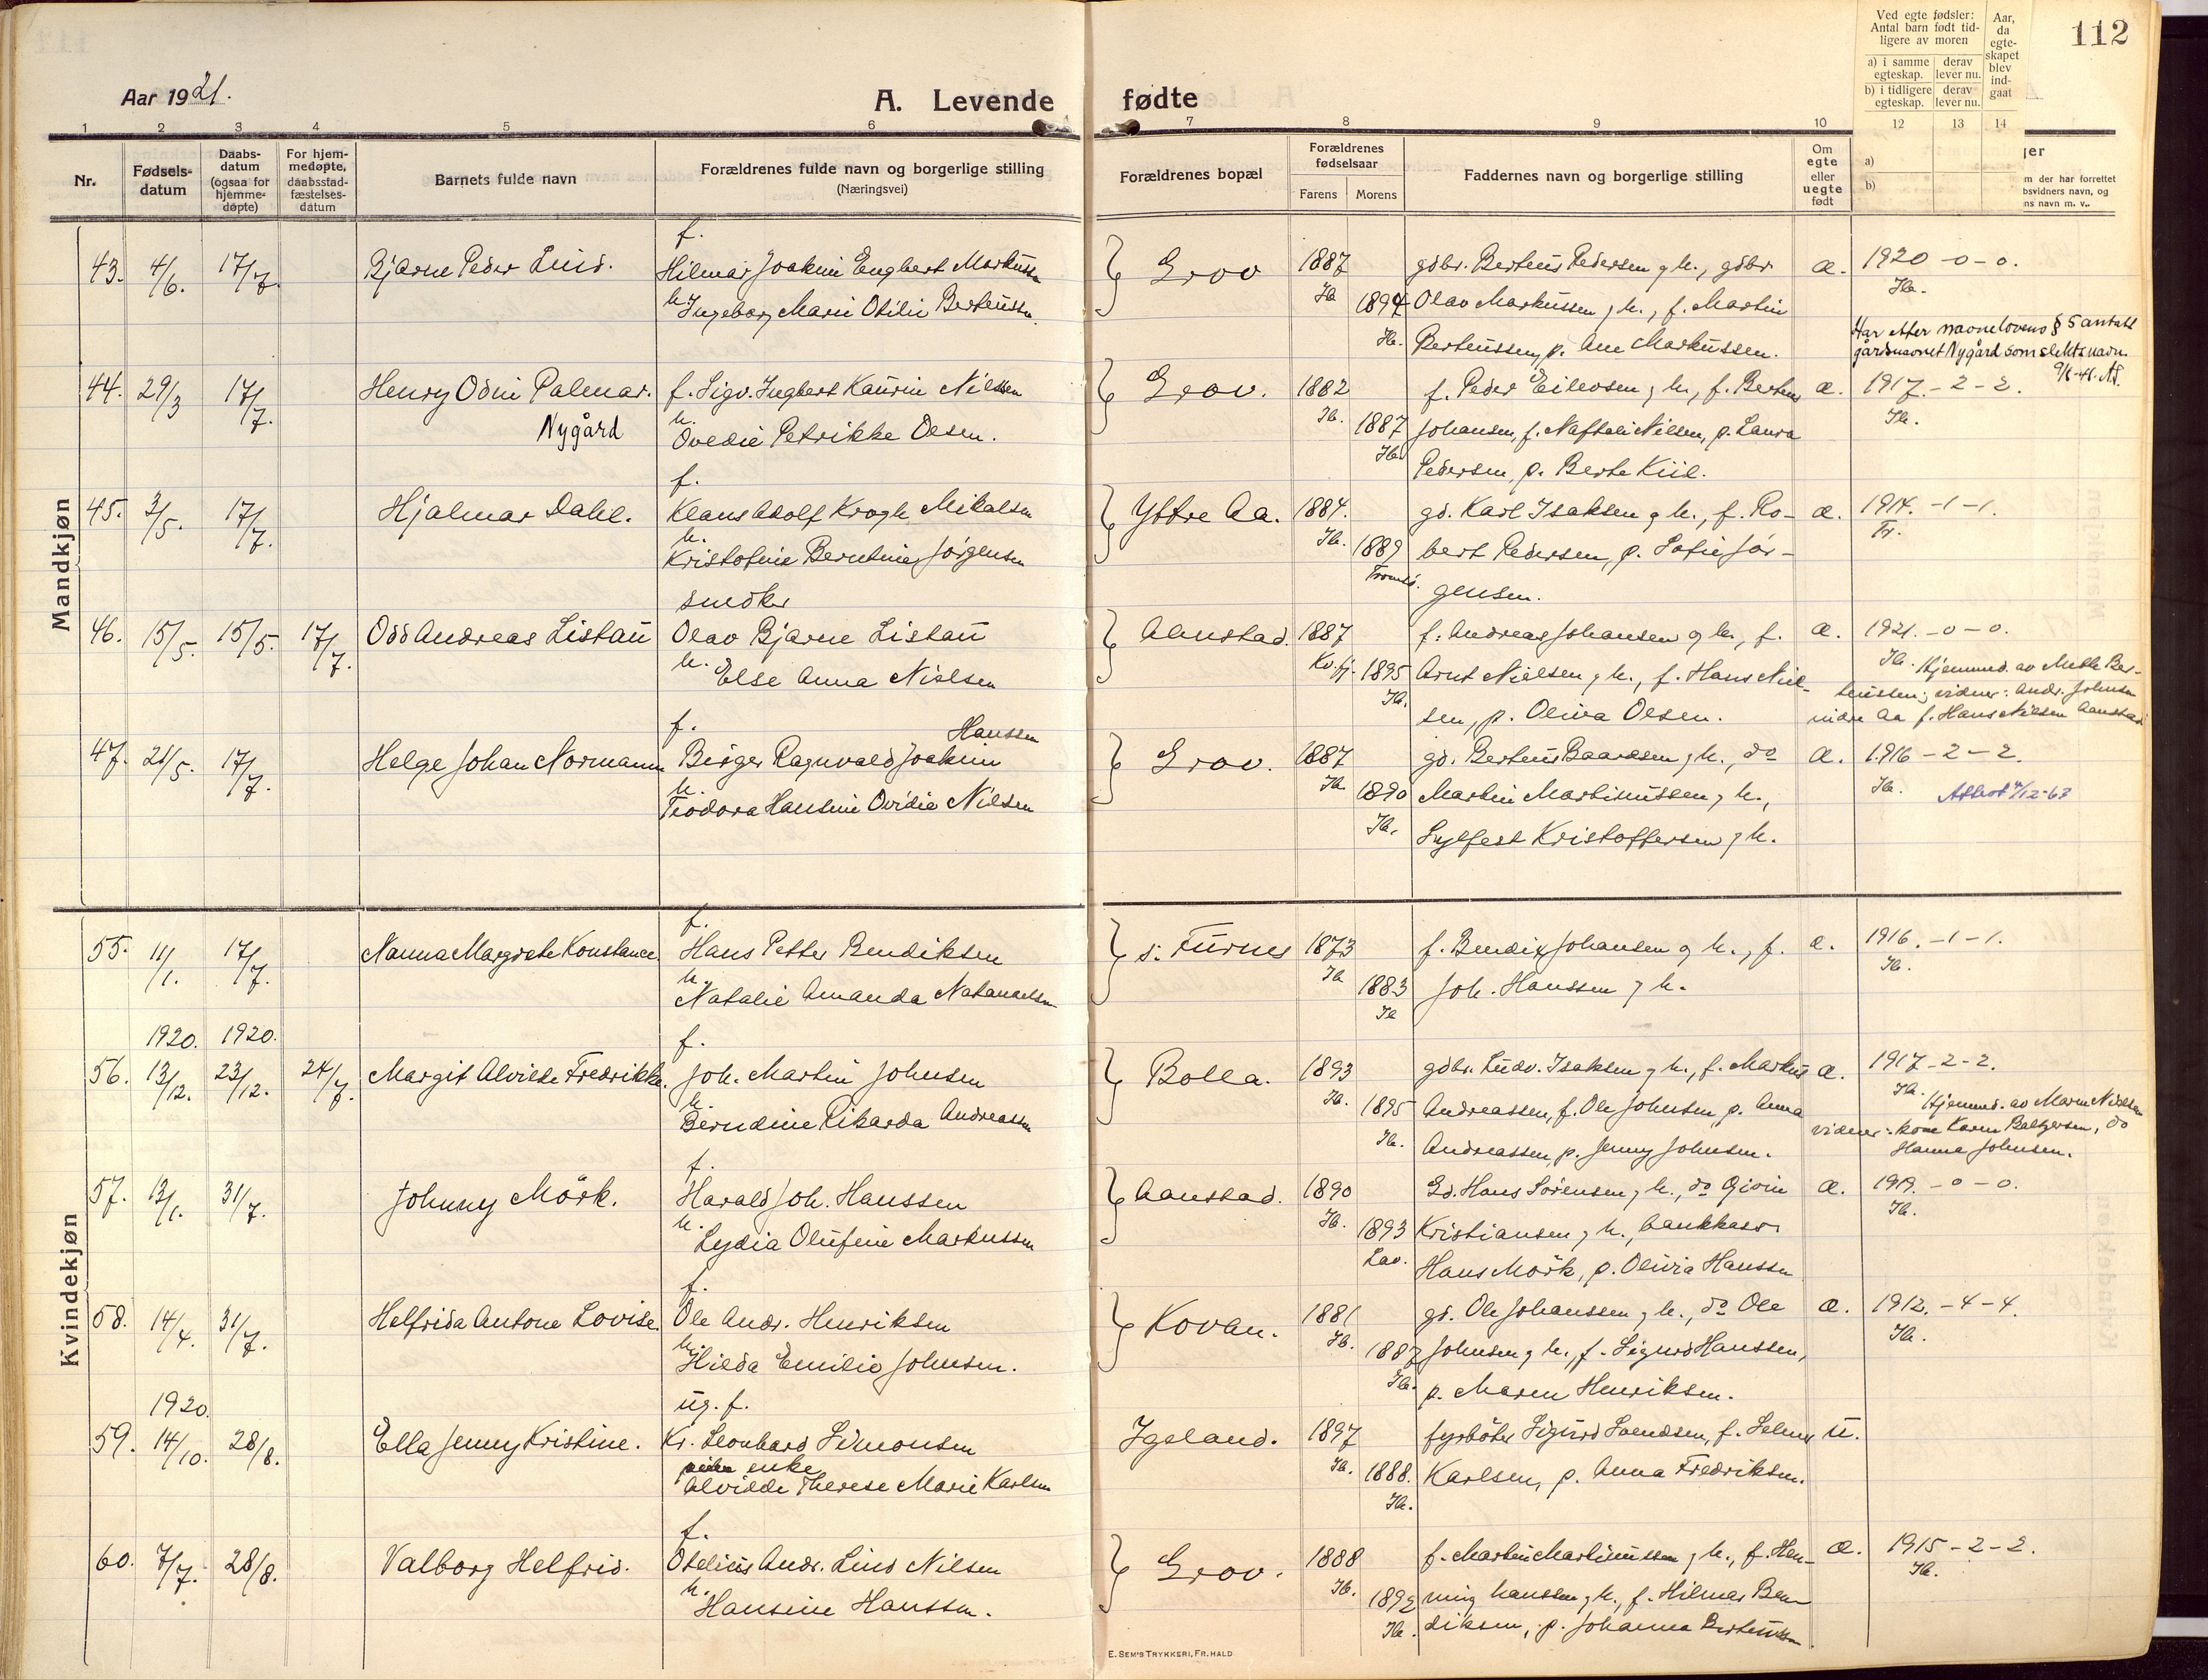 112
Aar 1921.
A. Levende fødte
1 2 3 4 5 6 7 8 9 10 12 13 14
Nr.
Fødsels-
datum
Daabs-
datum
(ogsaa for
hjemme-
døpte)
For hjem-
medøpte,
daabsstad-
fæstelses-
datum
Barnets fulde navn
Forældrenes fulde navn og borgerlige stilling
(Næringsvei)
Forældrenes bopæl
Forældrenes
fødselsaar
Farens Morens
Faddernes navn og borgerlige stilling
Om
egte
eller
uegte
født
Ved egte fødsler:
Antal barn født tid-
ligere av moren
a) i samme
egteskap.
derav
lever nu.
b) i tidligere
egteskap.
derav
lever nu.
Aar,
da
egte-
skapet
blev
ind-
gaat
a)
b)
jer
m der har forrettet
bsvidners navn, og
ns navn m. v..
Mandkjøn
f.
43. 4/6. 17/7. Bjarne Peder Lind. Hilmar Joakim Engbert Markussen
h. Ingeborg Marie Otilie Berteussen.
Grov 1887 gdbr. Berteus Pedersen g h., gdbr. æ. 1920 -0-0.
Ib. 1894 Olav Markussen g h., f. Martin Ib.
Ib. Berteussen, p. Ane Markussen.
Har etter navnelovens § 5 antatt
gårdsnavnet Nygård som slektsnavn.
9/6-41. AS.
44. 29/3 17/7. Henry Odin Palmar. f. Sigv. Ingbert Kaurin Nilssen
Nygård h. Ovedie Petrikke Olsen.
Grov. 1882 f. Peder Eilevsen g h., f. Berteus æ. 1917. - 2 - 2.
Ib. 1887 Johansen, f. Naftali Nilsen, p. Laura Ib.
Ib. Pedersen, p. Berte Kiil.
f.
45. 3/5. 17/7. Hjalmar Dahl. Klaus Adolf Krogh Mikalsen
h. Kristofine Berntine Jörgensen
Yttre Aa. 1884. gd. Karl Isaksen g h., f. Ro- æ. 1914. -1-1.
Ib. 1889 bert Pedersen, p. Sofie Jör- Tr.
Tromsö. gensen.
snedker
46. 15/5. 15/5. 17/7. Odd Andreas Listau Olav Bjarne Listau
h. Else Anna Nielsen
Aanstad. 1887 f. Andreas Johansen g h., f. æ. 1921. -0-0.
Kv.fj. 1895 Arnt Nielsen g h., f. Hans Niel- Ib. Hjemmed. av Meth Ber-
Ib. sen, p. Oliva Olsen. teussen; vidner: Andr. Johnsen
indre Aa f. Hans Nilsen Aanstad
f. Hanssen
47. 21/5. 17/7. Helge Johan Normann Birger Ragnvald Joakim
h. Teodora Hansine Ovidie Nilsen
Grov. 1887 gd. Berteus Baardsen g h., do æ. 1916 - 2 - 2.
Ib. 1890 Martin Martinussen g h., Ib.
Ib. Sylfest Kristoffersen g h.
Kvindekjøn
f.
55. 11/1. 17/7. Nanna Margrete Konstance. Hans Petter Bendiksen
h. Natalie Amanda Natanaelsen
s. Furnes 1873 f. Bendix Johansen g h., f. æ. 1916. -1-1.
Ib 1883 Joh. Hanssen g h. Ib.
Ib
1920. 1920. f.
56. 13/12. 23/12. 24/7. Margit Alvilde Fredrikke. Joh. Martin Johnsen
h. Berndine Rikarda Andreassen
Bolla. 1893 gdbr. Ludv. Isaksen g h., f. Markus æ. 1917 - 2 - 2.
Ib. 1895 Andreassen, f. Ole Johnsen, p. Anna Ib. Hjemmed. av Maren Nilsen
Ib. Andreassen, p. Jenny Johnsen. vidner: kone Karen Baltzersen, do
Hanna Johnsen.
f.
57. 13/1. 31/7. Johnny Mörk. Harald Joh. Hanssen
h. Lydia Olufine Markussen
Aanstad. 1890 Gd. Hans Sörensen g h., do Eivin æ. 1919. -0-0.
Ib. 1893 Kristiansen g h., bankkass. Ib.
Lav. Hans Mörk, p. Olivia Hanssen
f.
58. 14/4. 31/7. Helfrida Antone Lovise. Ole Andr. Henriksen
h. Hilda Emilie Johnsen.
Kovan. 1881 gd. Ole Johanssen g h., do Ole æ. 1912. -4-4.
Ib. 1887 Johnsen g h., f. Sigurd Hanssen, Ib.
Ib. p. Maren Henriksen.
1920. ug. f.
59. 14/10. 28/8. Ella Jenny Kristine. Kr. Leonhard Simonsen
enke
Alvilde Therese Marie Karlsen
Igeland. 1897 fyrböter Sigurd Svendsen, f. Selmer u.
Ib. 1888. Karlsen, p. Anna Fredriksen.
Ib.
f.
60. 7/7. 28/8. Valborg Helfrid. Otelius Andr. Lind Nilsen
h. Hansine Hanssen.
Grov. 1888 f. Martin Martinussen g h., f. Hen- æ. 1915 - 2 - 2.
Ib. 1892 ning Hanssen g h., f. Hilmar Ben- Ib.
Ib. diksen, p. Johanna Berteussen.
E. SEM'S TRYKKERI, FR. HALD